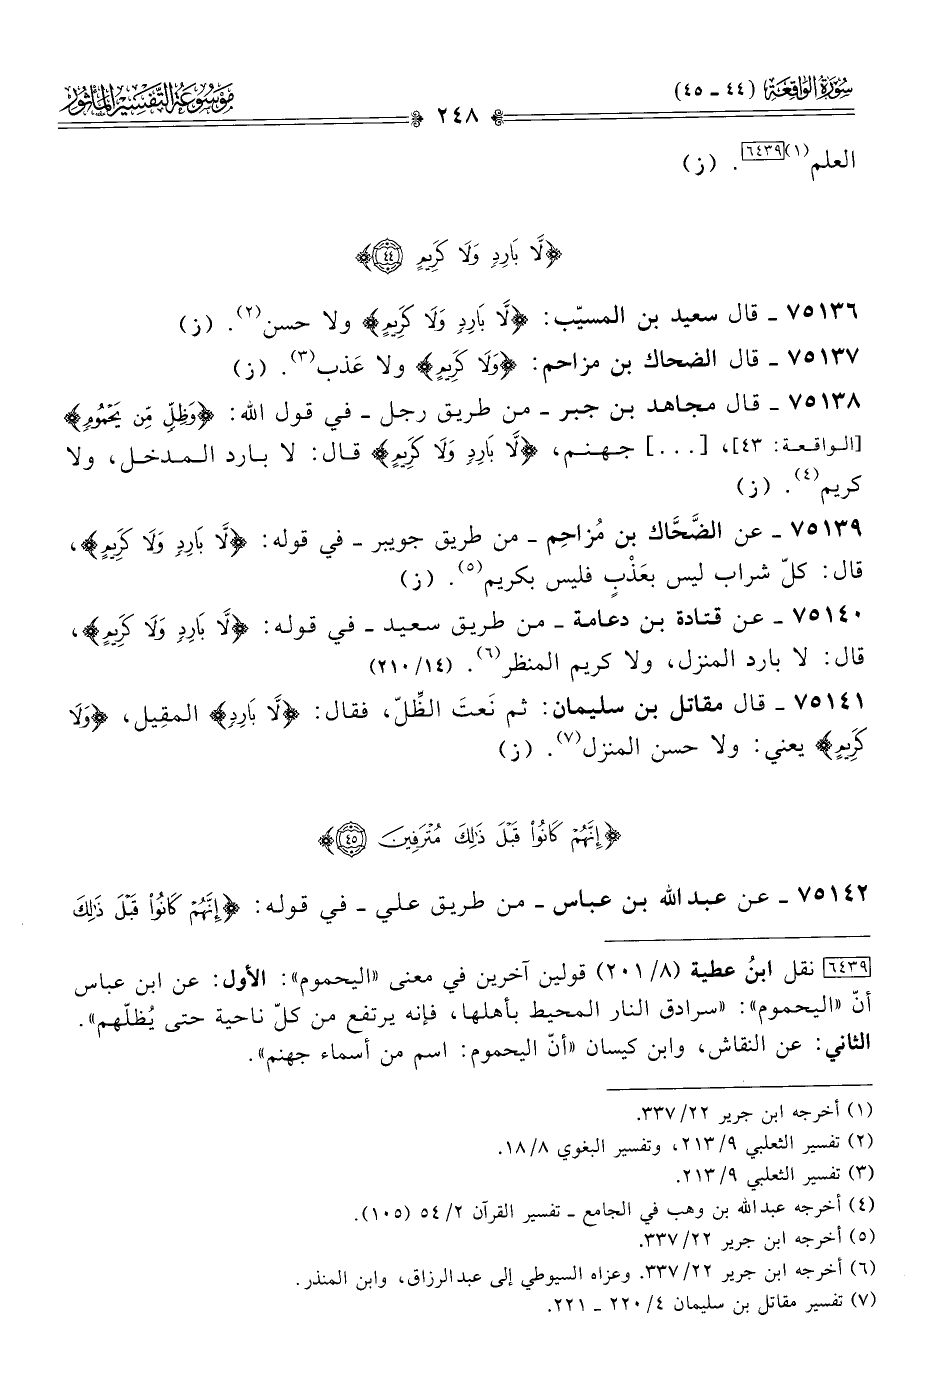 سُورَةُ الوَاقِعَة (٤٤ - ٤٥)
٢٤٨
مَوْسُوعَةُ التَّفْسِيرِ المَأْثُور
العلم(١)[٦٤٣٩]. (ز)
﴿لَّا بَارِدٍ وَلَا كَرِيمٍ ٤٤﴾
٧٥١٣٦ - قال سعيد بن المسيّب: ﴿لَّا بَارِدٍ وَلَا كَرِيمٍ﴾ ولا حسن(٢). (ز)
٧٥١٣٧ - قال الضحاك بن مزاحم: ﴿وَلَا كَرِيمٍ﴾ ولا عَذب(٣). (ز)
٧٥١٣٨ - قال مجاهد بن جبر - من طريق رجل - في قول الله: ﴿وَظِلٍّ مِّن يَحْمُومٍ﴾
[الواقعة: ٤٣]، [...] جهنم، ﴿لَّا بَارِدٍ وَلَا كَرِيمٍ﴾ قال: لا بارد المدخل، ولا
كريم(٤). (ز)
٧٥١٣٩ - عن الضَّحَّاك بن مُزاحِم - من طريق جويبر - في قوله: ﴿لَّا بَارِدٍ وَلَا كَرِيمٍ﴾،
قال: كلّ شراب ليس بعَذْبٍ فليس بكريم(٥). (ز)
٧٥١٤٠ - عن قتادة بن دعامة - من طريق سعيد - في قوله: ﴿لَّا بَارِدٍ وَلَا كَرِيمٍ﴾،
قال: لا بارد المنزل، ولا كريم المنظر(٦). (٢١٠/١٤)
٧٥١٤١ - قال مقاتل بن سليمان: ثم نَعتَ الظِّلّ، فقال: ﴿لَّا بَارِدٍ﴾ المقِيل، ﴿وَلَا
كَرِيمٍ﴾ يعني: ولا حسن المنزل(٧). (ز)
﴿إِنَّهُمْ كَانُوا۟ قَبْلَ ذَٰلِكَ مُتْرَفِينَ ٤٥﴾
٧٥١٤٢ - عن عبد الله بن عباس - من طريق علي - في قوله: ﴿إِنَّهُمْ كَانُوا۟ قَبْلَ ذَٰلِكَ
[٦٤٣٩] نقل ابنُ عطية (٢٠١/٨) قولين آخرين في معنى «اليحموم»: الأول: عن ابن عباس
أنّ «اليحموم»: «سرادق النار المحيط بأهلها، فإنه يرتفع من كلّ ناحية حتى يُظلّهم».
الثاني: عن النقاش، وابن كيسان «أنّ اليحموم: اسم من أسماء جهنم».
(١) أخرجه ابن جرير ٣٣٧/٢٢.
(٢) تفسير الثعلبي ٢١٣/٩، وتفسير البغوي ١٨/٨.
(٣) تفسير الثعلبي ٢١٣/٩.
(٤) أخرجه عبد الله بن وهب في الجامع - تفسير القرآن ٥٤/٢ (١٠٥).
(٥) أخرجه ابن جرير ٣٣٧/٢٢.
(٦) أخرجه ابن جرير ٣٣٧/٢٢. وعزاه السيوطي إلى عبد الرزاق، وابن المنذر.
(٧) تفسير مقاتل بن سليمان ٢٢٠/٤ - ٢٢١.